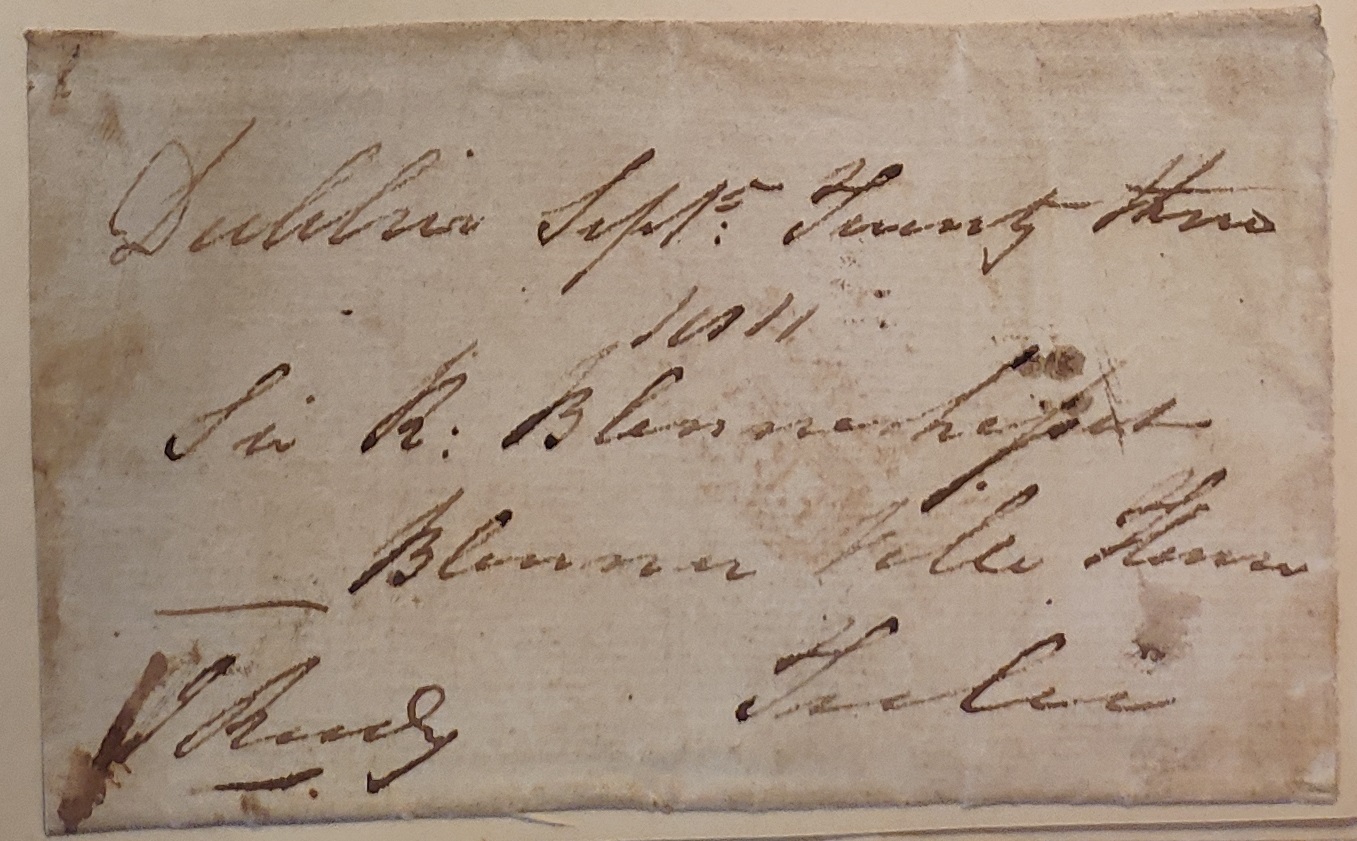 Dublin Septr. Twenty three
1811
Sir R: Blennerhasset
Blenner Ville House
Tralee